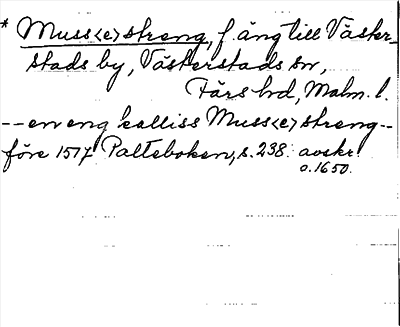 * Muss<e>streng, f. äng till Väster-
stads by, Västerstads sn,
Färs hd, Malm. l.
-- en eng kalliss Muss<e>streng --
före 1517 Palteboken, s. 238. avskr.
o. 1650.